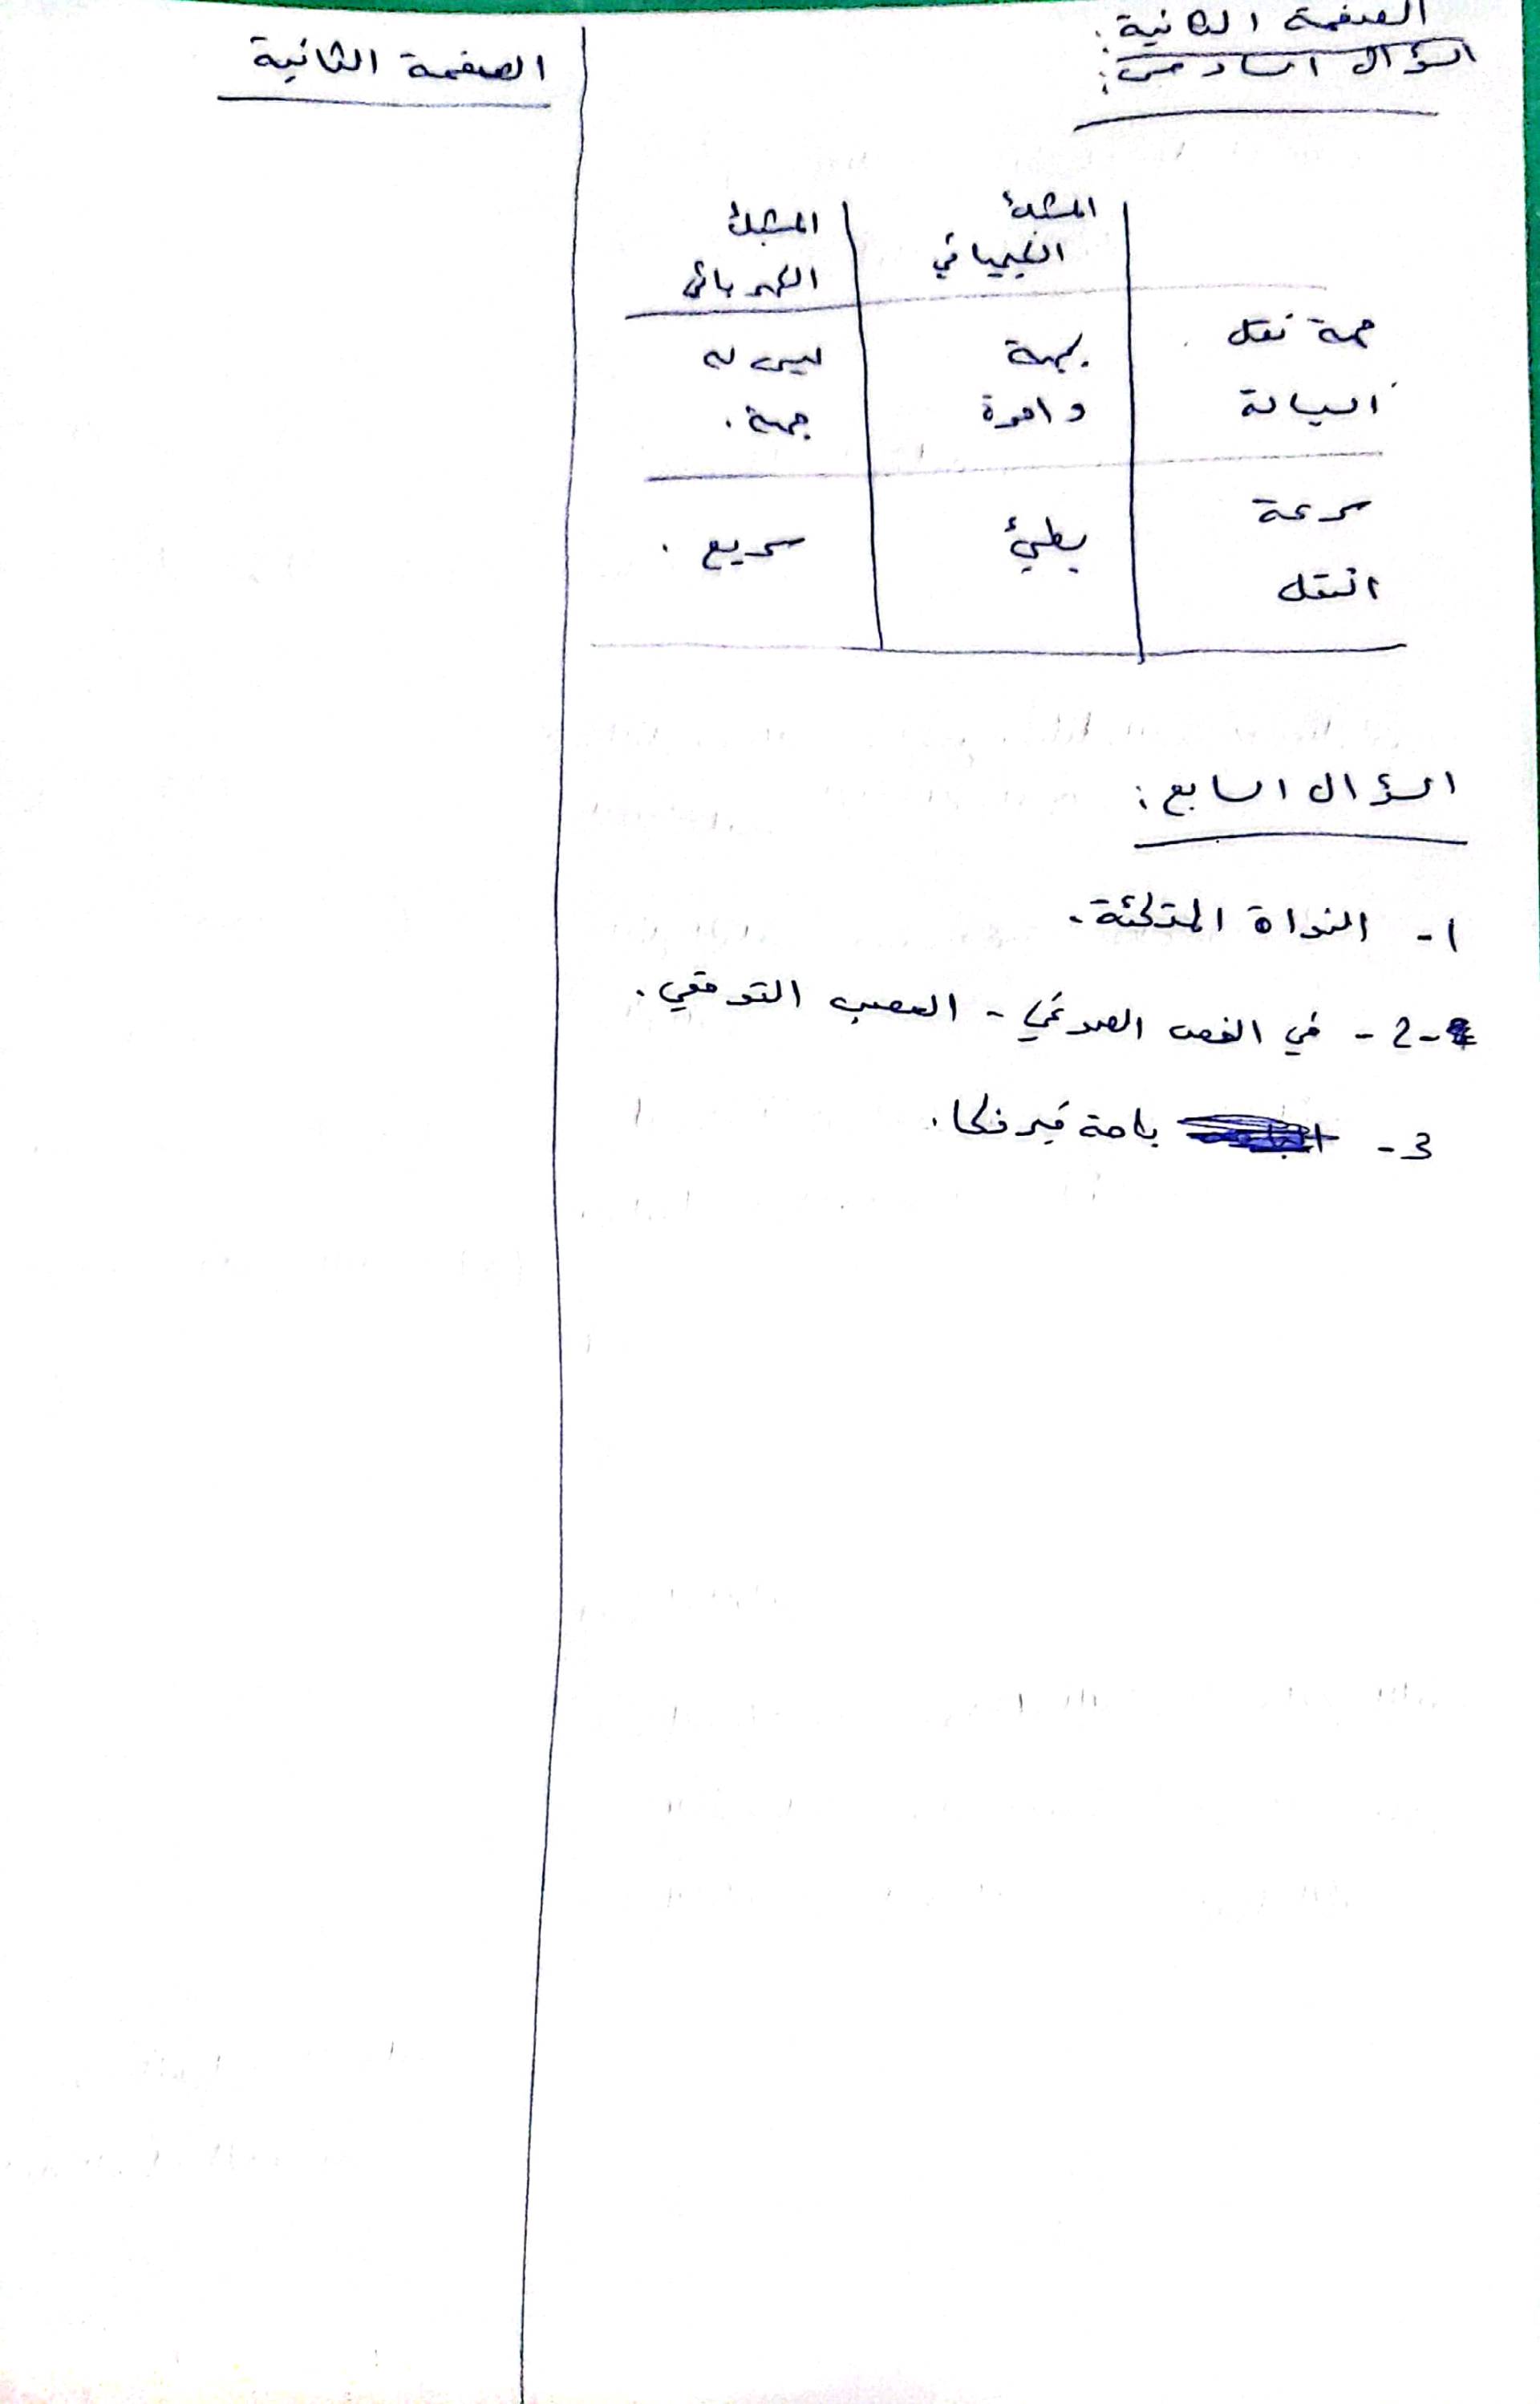 الصفحة الثانية:
السؤال السادس:
المشبك الكيميائي
المشبك الكهربائي
جهة نقل السيالة
بجهة واحدة
ليس له جهة.
سرعة النقل
بطيئ
سريع.
السؤال السابع:
1- النواة المتكئة.
2- في الفص الصدغي - العصب القوقعي.
3- باحة فيرنكا.
الصفحة الثانية